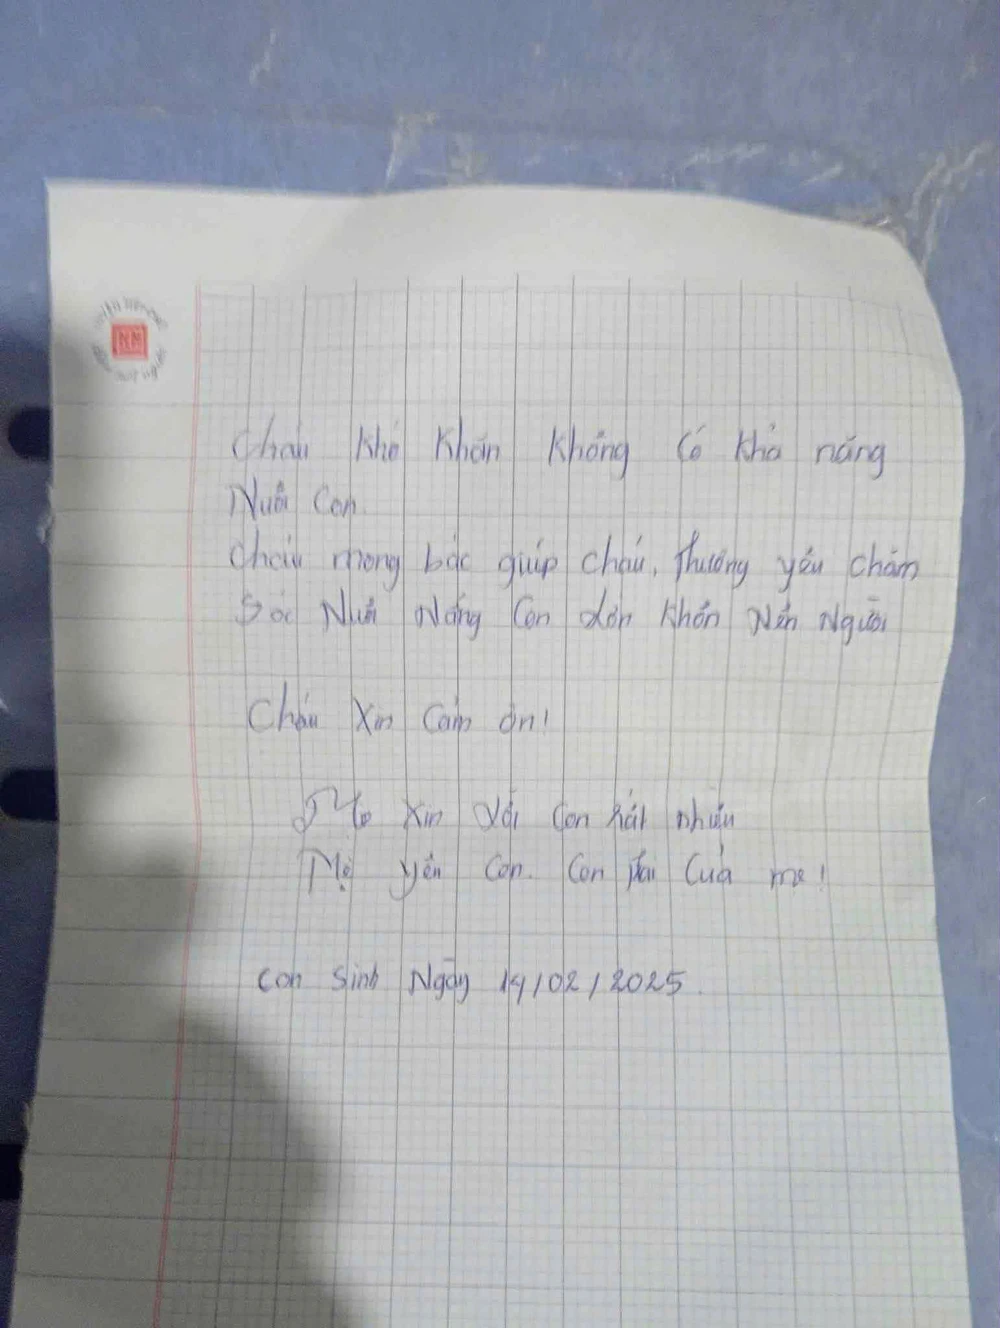 Cháu khó khăn không có khả năng
Nuôi con
Cháu mong bác giúp cháu, thương yêu chăm
sóc Nuôi Nấng con lớn khôn Nên Người
Cháu xin cảm ơn!
Mẹ xin lỗi con rất nhiều
Mẹ yêu con. Con trai của mẹ!
Con Sinh Ngày 14/02/2025.